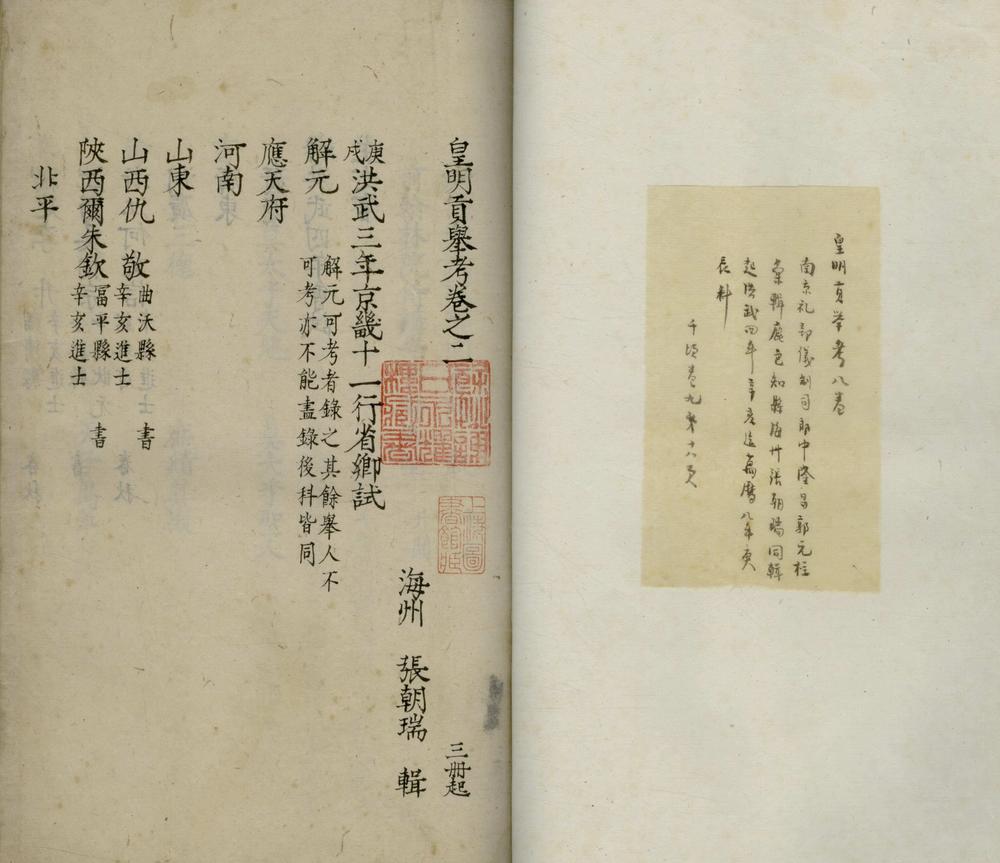 皇明貢舉考八卷
南京礼部儀制司郎中隆昌郭元柱
彙輯廬邑知縣海州張朝瑞同輯
起洪武四年辛亥迄萬曆八年庚
辰科
千頃卷九第十八頁
皇明貢舉考卷之二
三冊起
餘姚謝氏永耀樓藏書
上海圖書館藏
海州 張朝瑞 輯
庚戌洪武三年京畿十一行省鄉試
解元 解元可考者錄之其餘舉人不
可考亦不能盡錄後科皆同
應天府
河南
山東
山西仇敬 曲沃縣 書
辛亥進士
陝西爾朱欽 富平縣 書
辛亥進士
北平